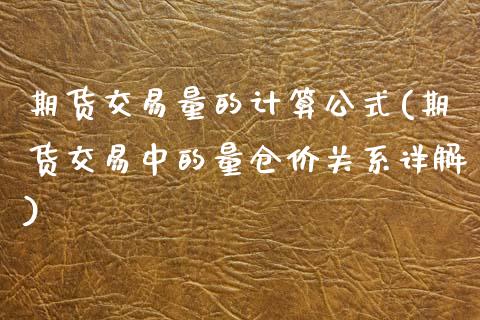 期货交易量的计算公式(期
货交易中的量仓价关系详解
)